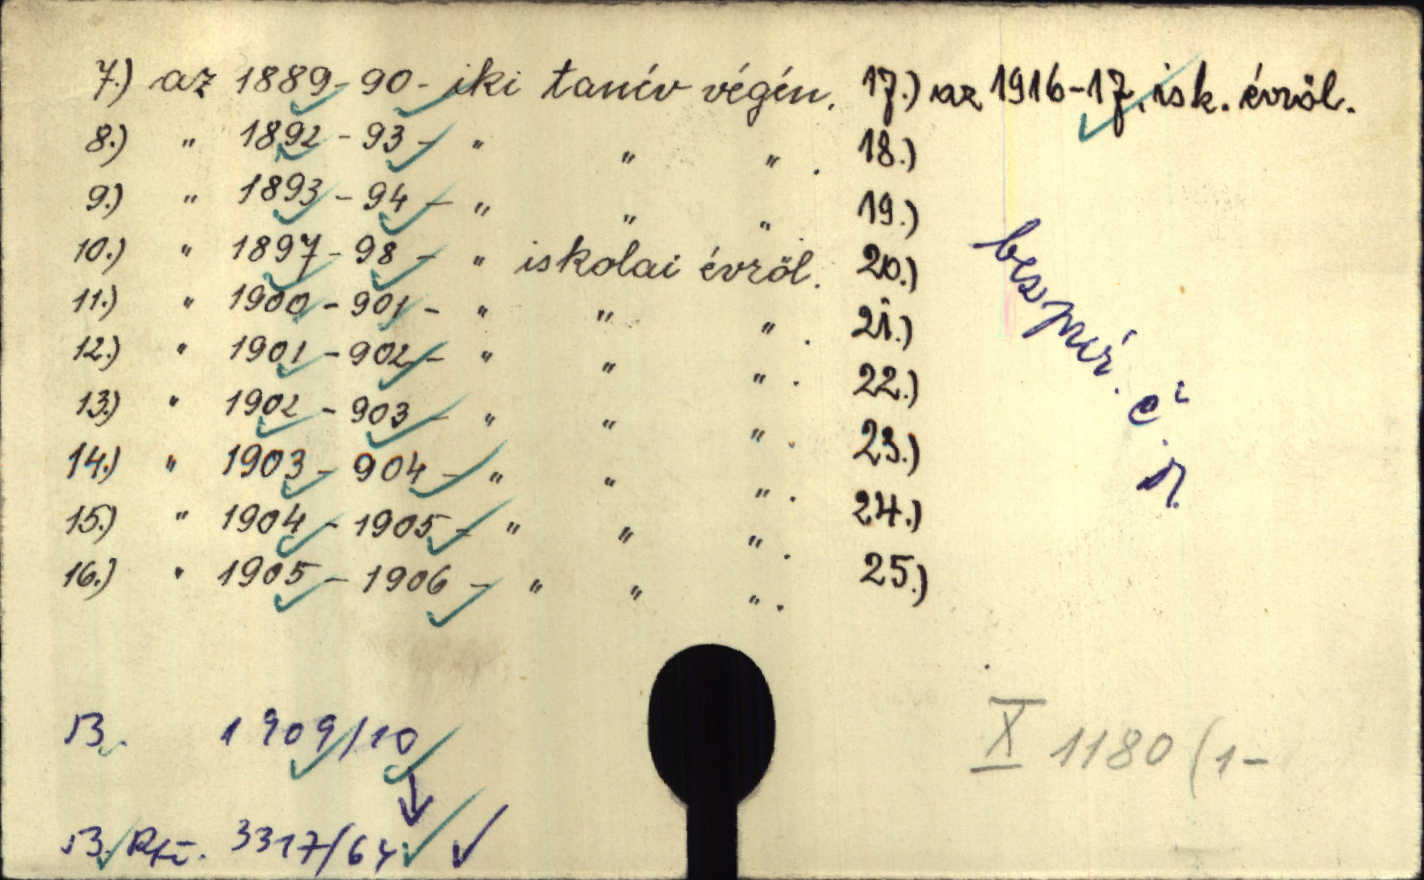 7.) az 1889-90-iki tanév végén.
8.) " 1892-93- " " " .
9.) " 1893-94- " " "
10.) " 1897-98- " iskolai évről.
11.) " 1900-901- " " " .
12.) " 1901-902- " " " .
13.) " 1902-903- " " " .
14.) " 1903-904- " " " .
15.) " 1904-1905- " " " .
16.) " 1905-1906- " " " .
17.) az 1916-17. isk. évről.
18.)
19.)
20.)
21.)
22.)
23.)
24.)
25.)
B. 1909/10
B. 3317/64
X 1180 (1-